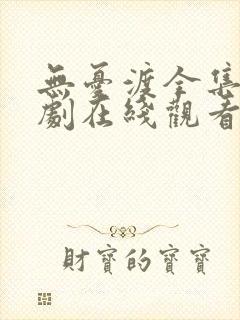 無憂渡全集
劇在綫觀看
財寶的寶寶